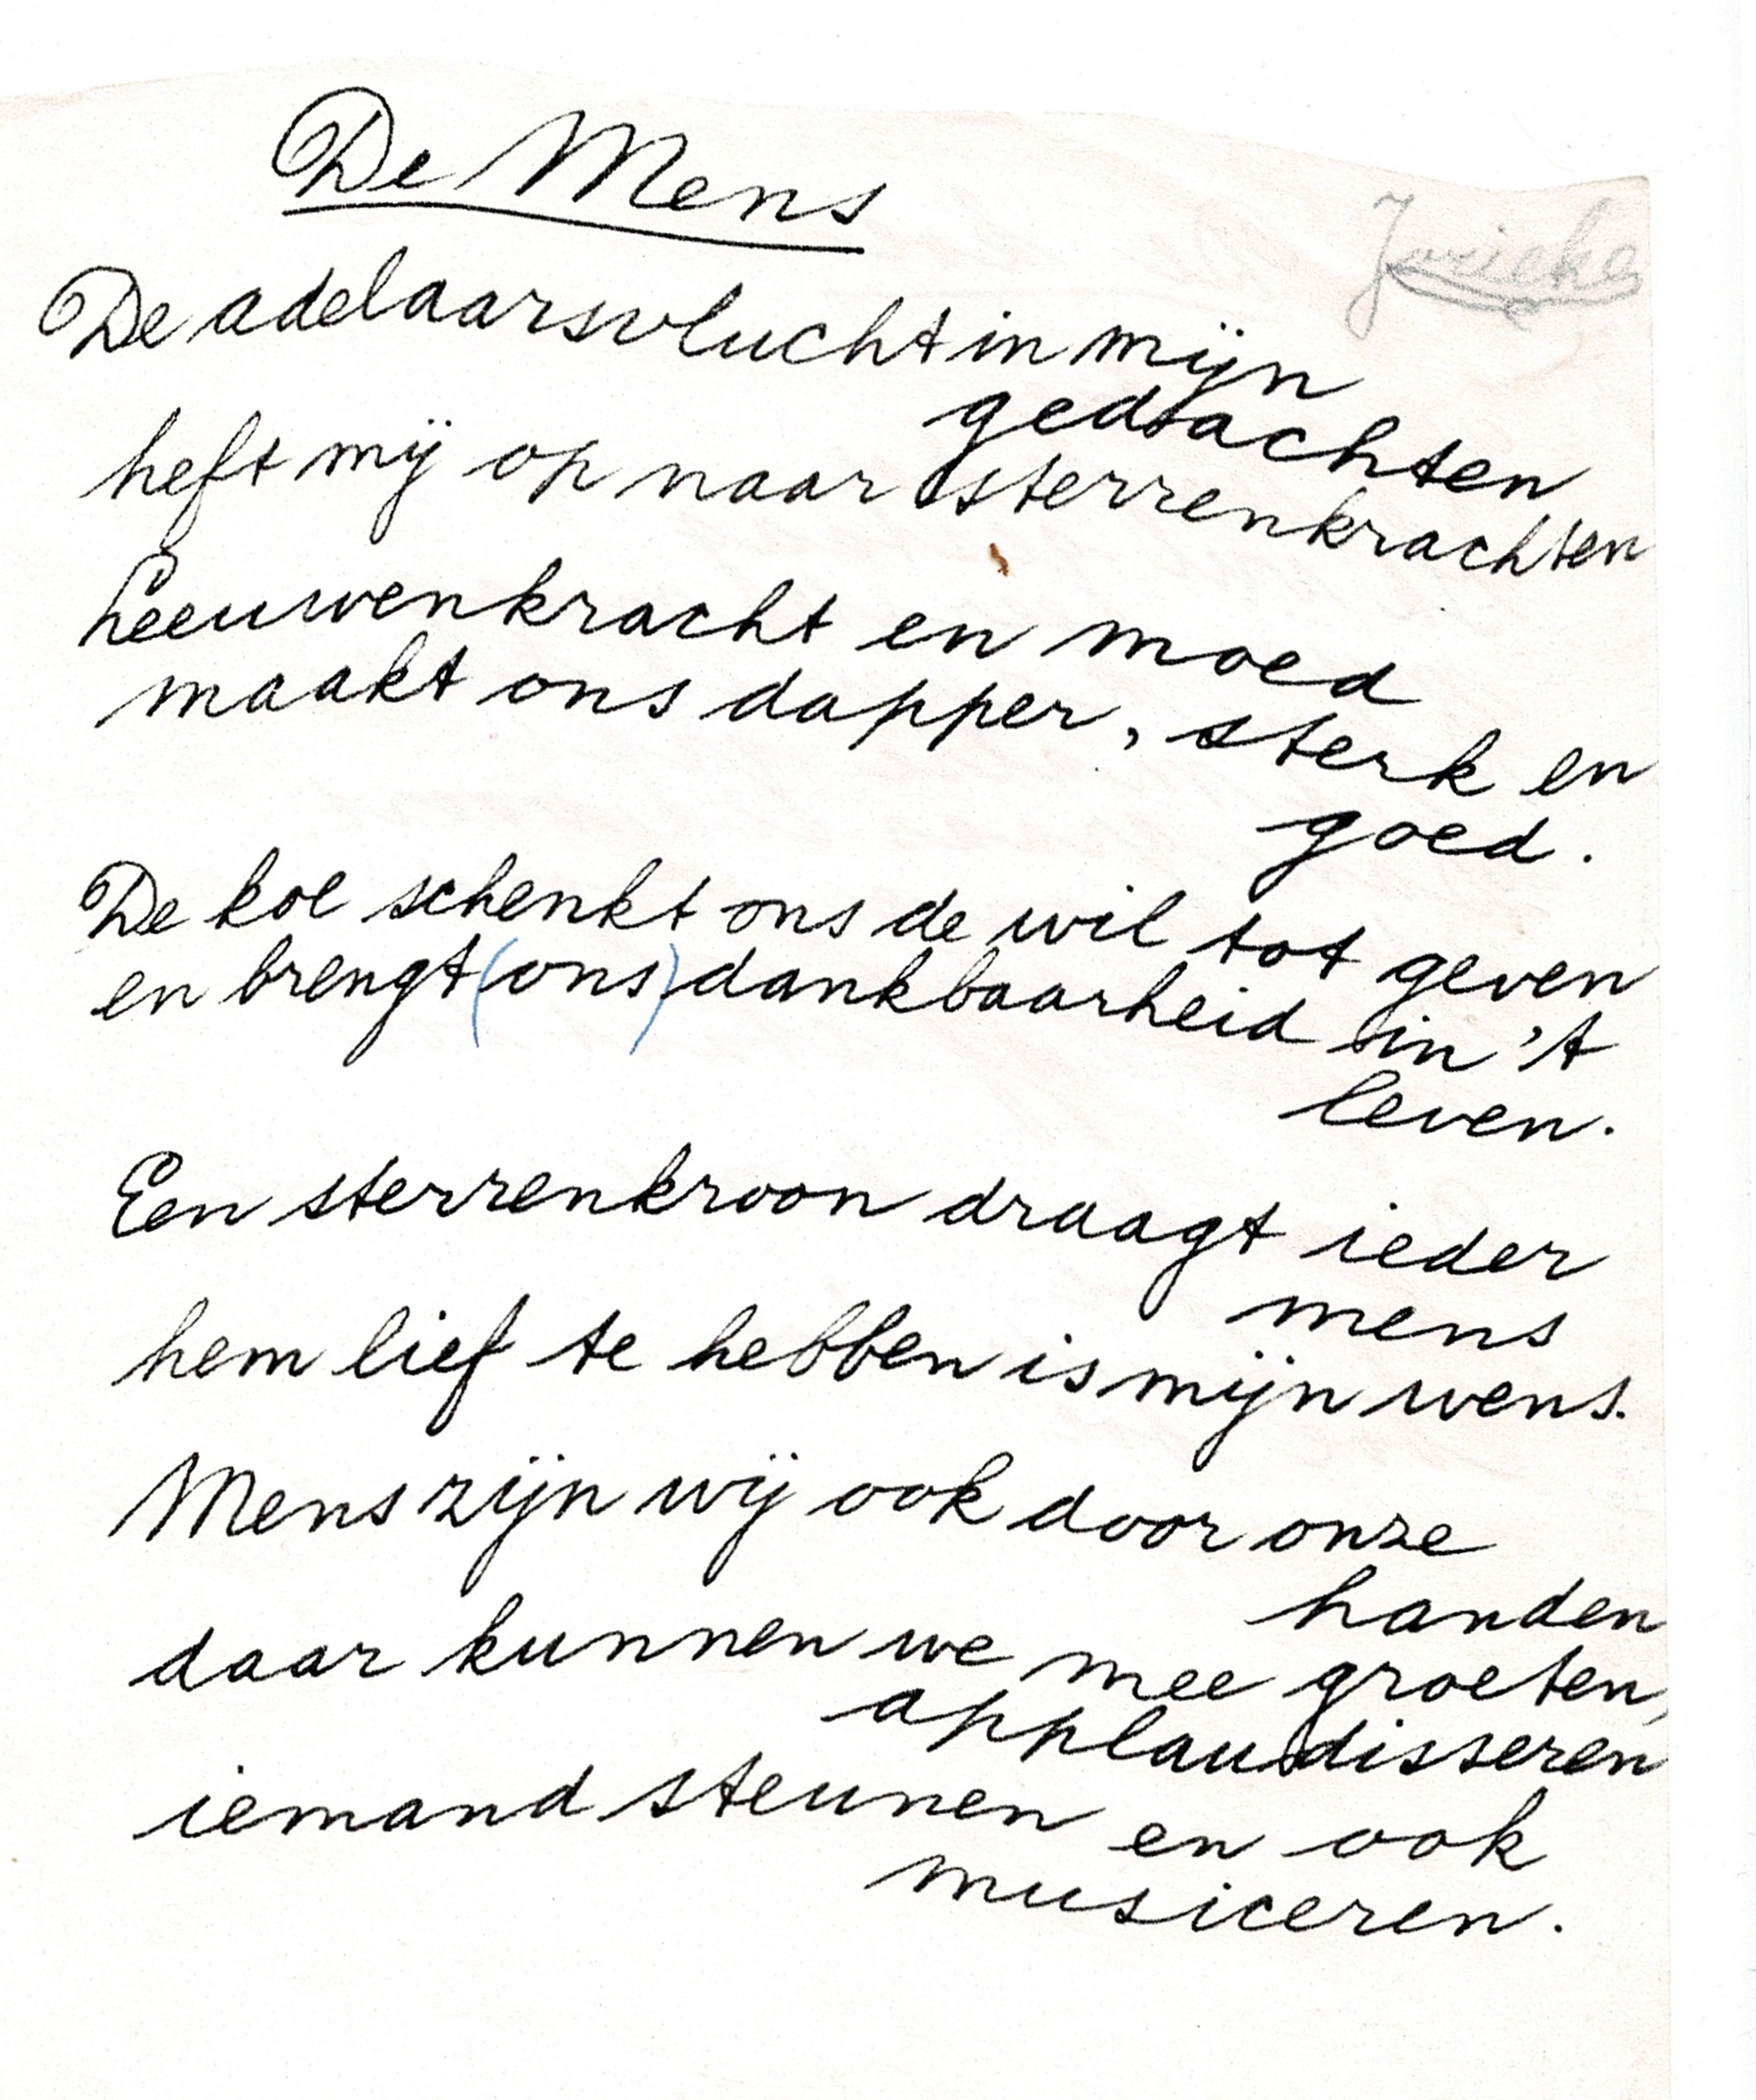 De Mens
De adelaarsvlucht in mijn
gedachten
heft mij op naar sterrenkrachten
Leeuwenkracht en moed
maakt ons dapper, sterk en
goed.
De koe schenkt ons de wil tot geven
en brengt (ons) dankbaarheid in 't
leven.
Een sterrenkroon draagt ieder
mens
hem lief te hebben is mijn wens.
Mens zijn wij ook door onze
handen
daar kunnen we mee groeten,
applaudisseren
iemand steunen en ook
musiceren.